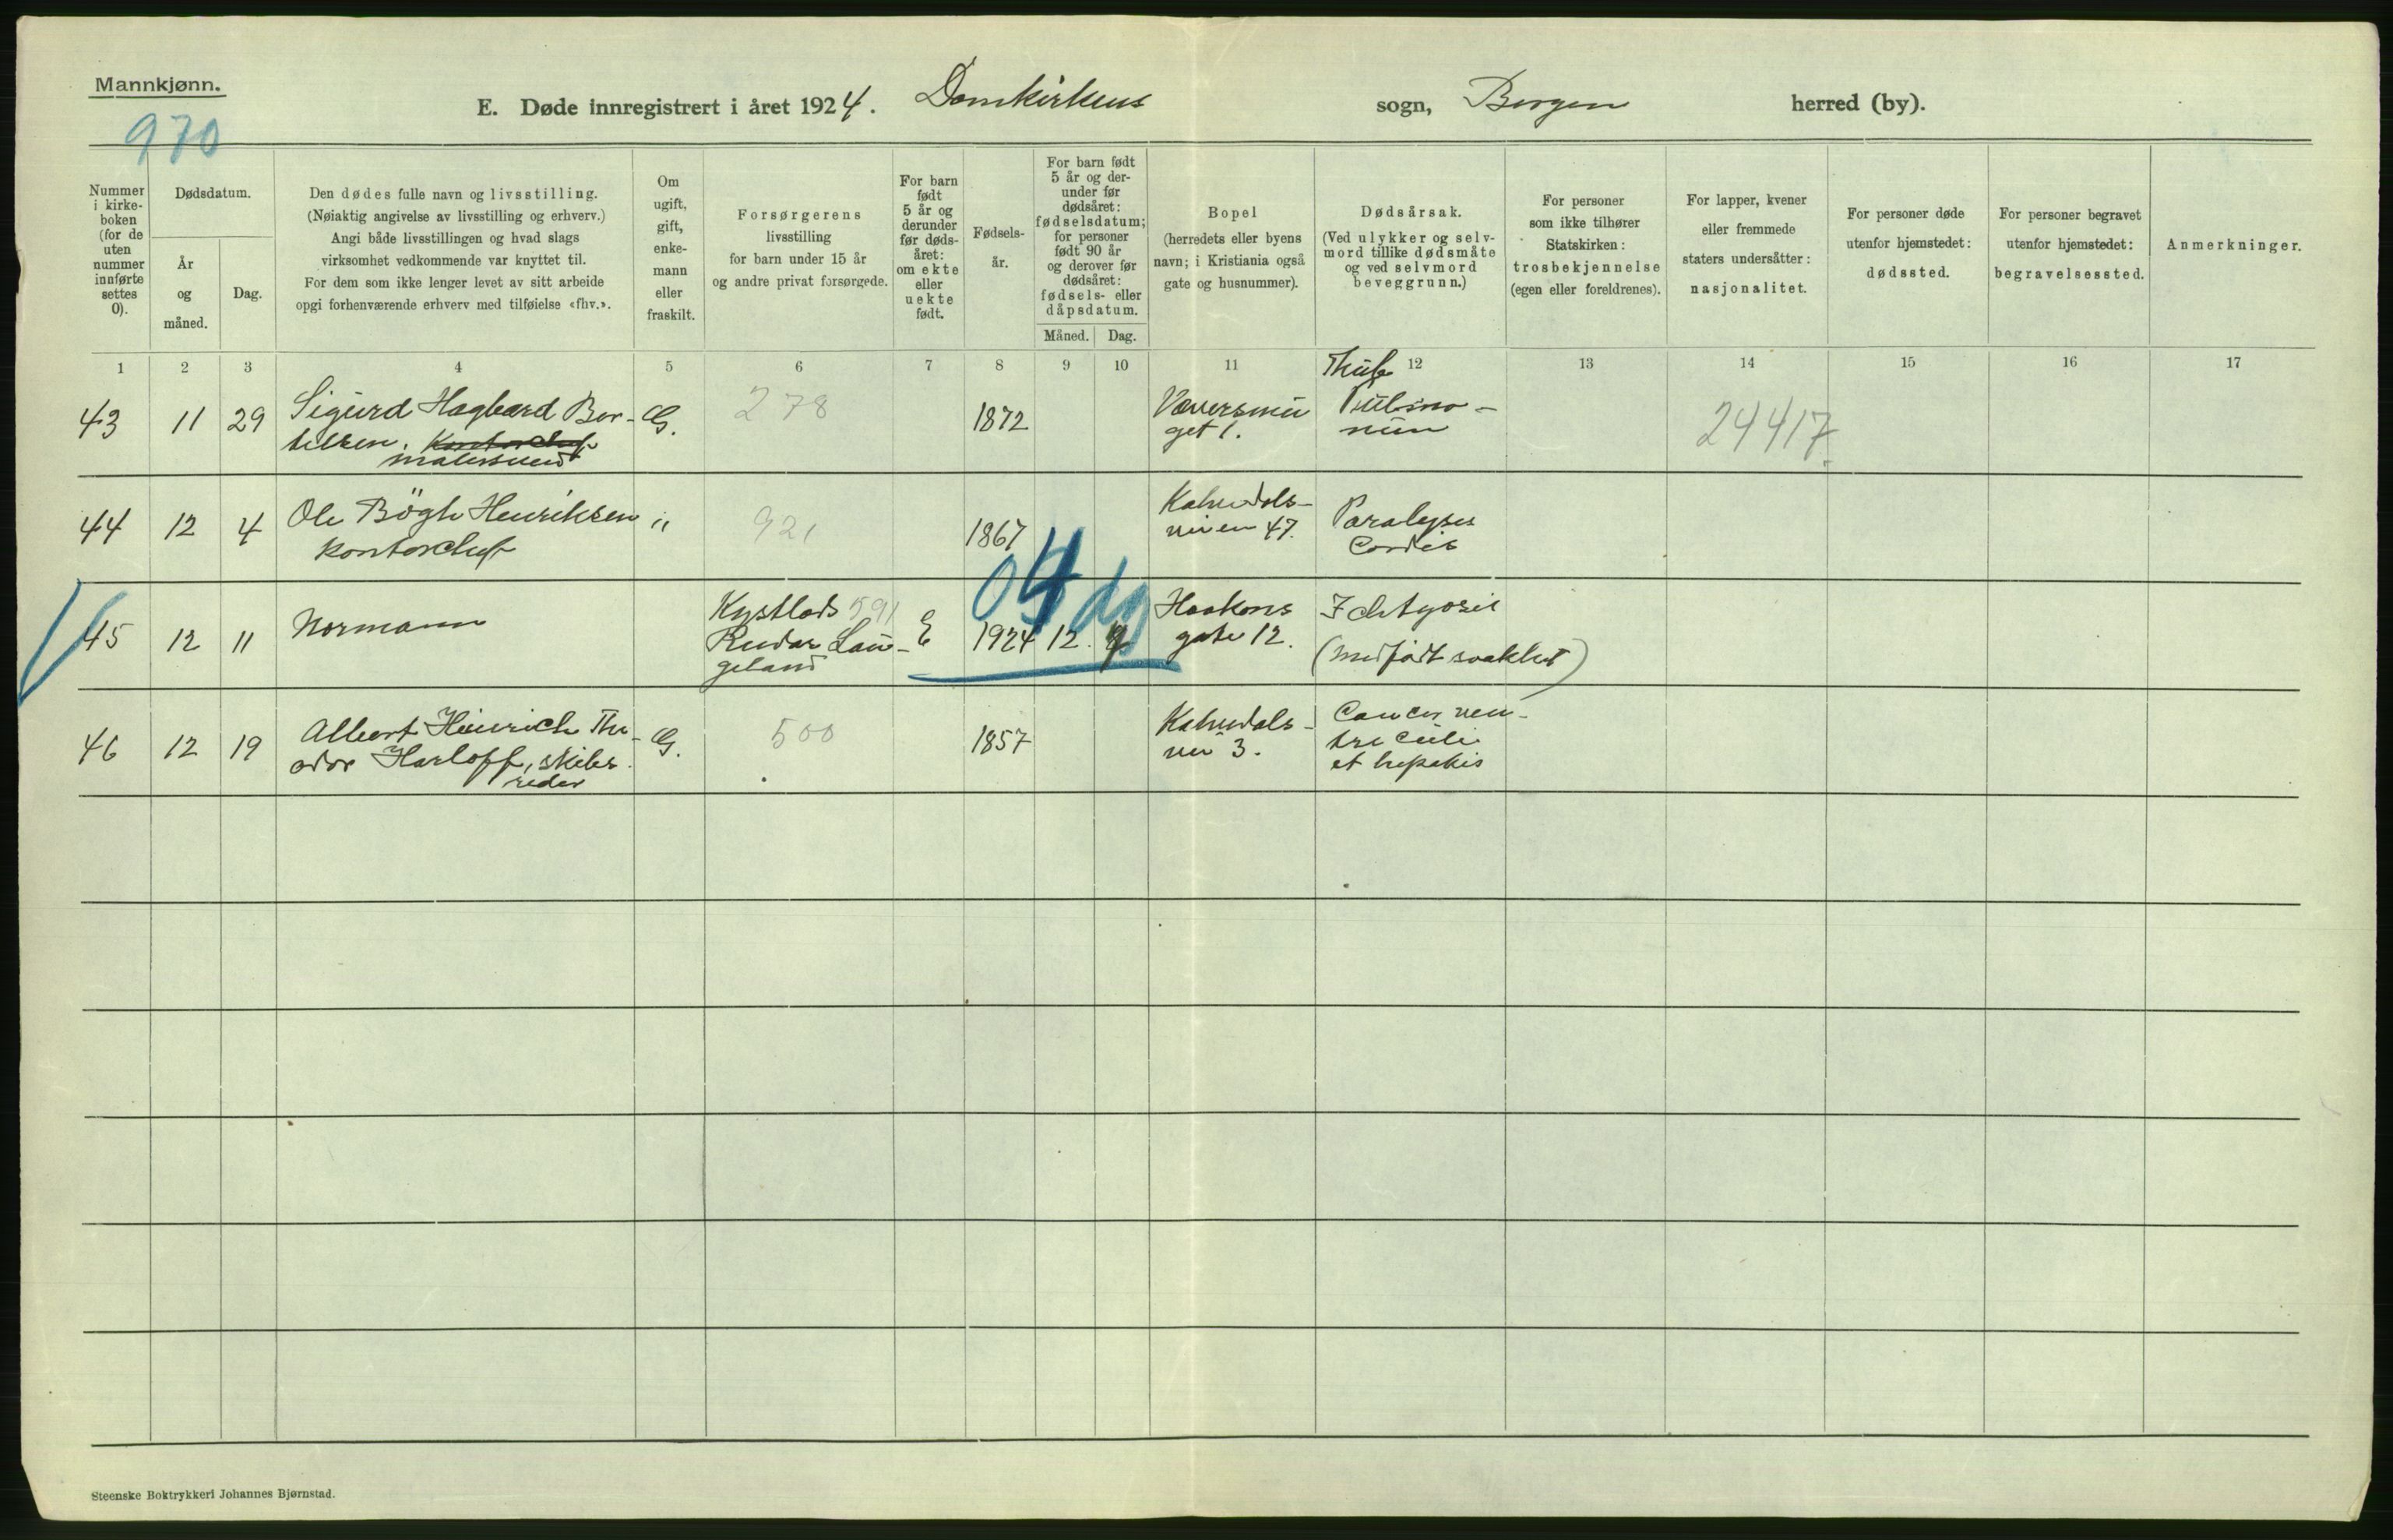 Mannkjønn.
970
E. Døde innregistrert i året 1924. Domkirkens sogn, Bergen herred (by).
Nummer i kirke-boken (for de uten nummer innførte settes 0).
Dødsdatum.
År og måned.
Dag.
Den dødes fulle navn og livsstilling.
(Nøiaktig angivelse av livsstilling og erhverv.)
Angi både livsstillingen og hvad slags
virksomhet vedkommende var knyttet til.
For dem som ikke lenger levet av sitt arbeide
opgi forhenværende erhverv med tilføielse «fhv.».
Om ugift, gift, enke-mann eller fraskilt.
Forsørgerens
livsstilling
for barn under 15 år
og andre privat forsørgede.
For barn født 5 år og derunder før døds-året: om ekte eller uekte født.
Fødsels-år.
For barn født 5 år og der-under før dødsåret: fødselsdatum; for personer født 90 år og derover før dødsåret: fødsels- eller dåpsdatum.
Måned. Dag.
Bopel
(herredets eller byens
navn; i Kristiania også
gate og husnummer).
Dødsårsak.
(Ved ulykker og selv-
mord tillike dødsmåte
og ved selvmord
beveggrunn.)
For personer
som ikke tilhører
Statskirken:
trosbekjennelse
(egen eller foreldrenes).
For lapper, kvener
eller fremmede
staters undersåtter:
nasjonalitet.
For personer døde
utenfor hjemstedet:
dødssted.
For personer begravet
utenfor hjemstedet:
begravelsessted.
Anmerkninger.
1 2 3 4 5 6 7 8 9 10 11 12 13 14 15 16 17
43 11 29 Sigurd Hagbard Ber-
telsen. Kontorchef
malersvend
G. 278 1872
Væversmu
get 1.
Tub
Pulmo-
num
24417.
44 12 4 Ole Bögh Henriksen
Kontorchef
" 921 1867
Kalvedals-
veien 47.
Paralysis
Cordis
04 dg
45 12 11 Normann
Kystlods 591
Reidar Lan-
geland
E 1924 12
Haakons
gate 12.
Ichtyosis
(medfødt svakhet)
46 12 19 Albert Hinrich The-
odor Harloff, skibs
reder
G. 500 1857
Kalvedals-
vei 3.
Cancer ven-
triculi
et hepatis
Steenske Boktrykkeri Johannes Bjørnstad.